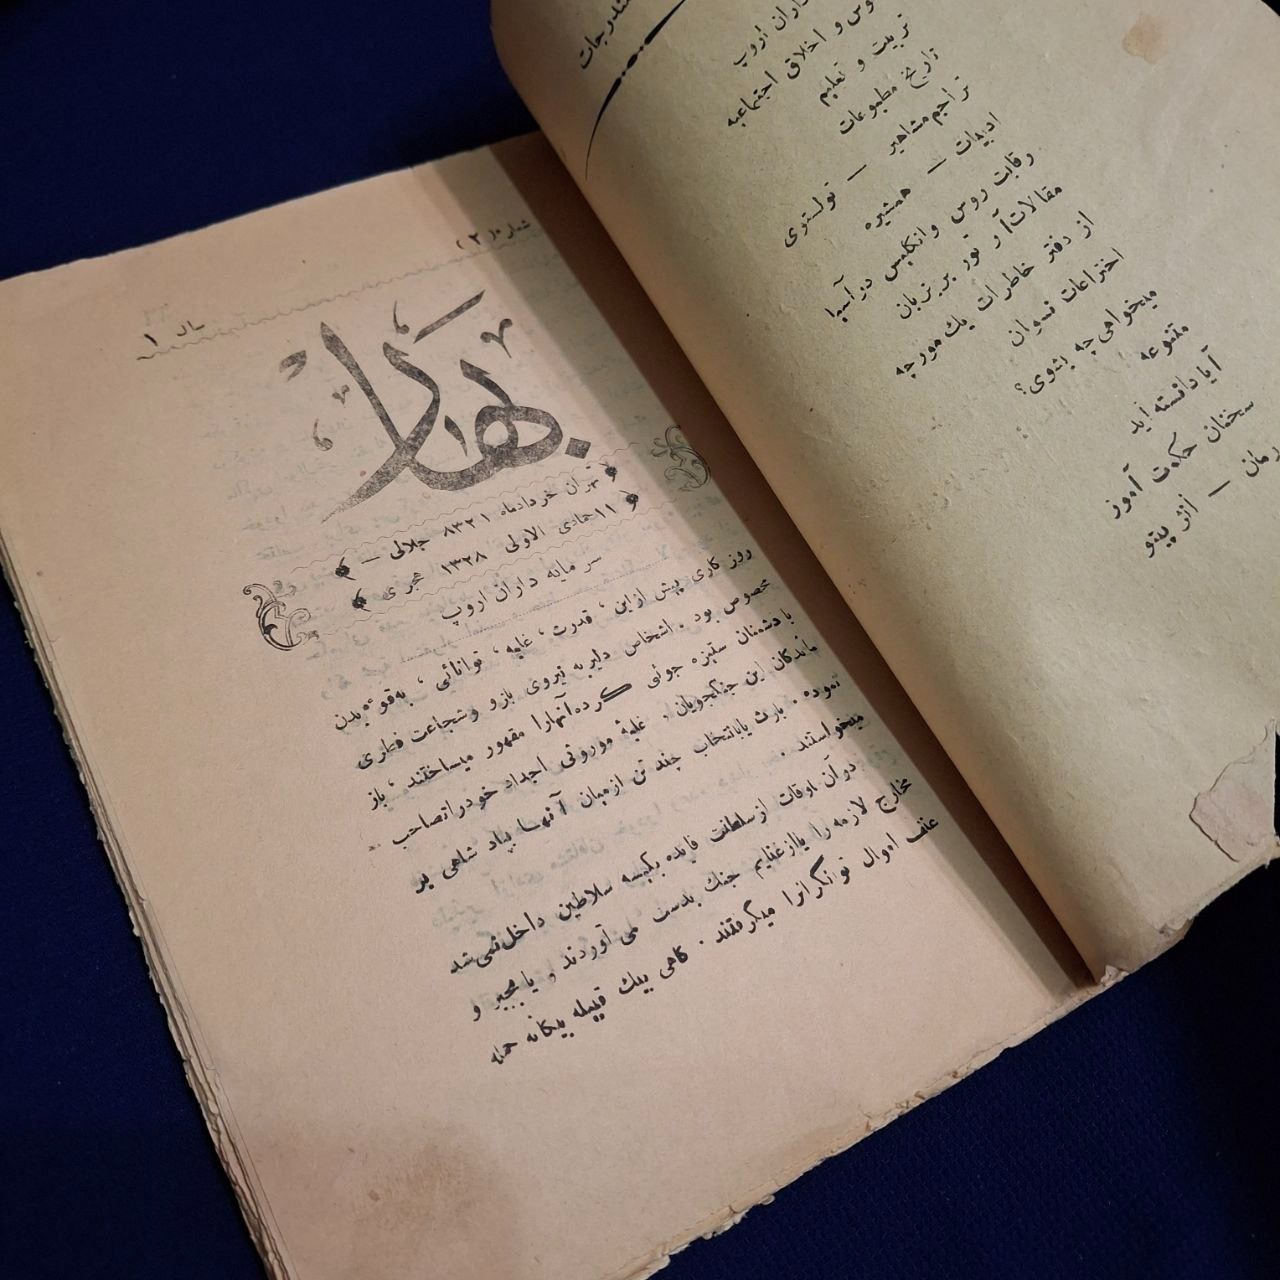 مندرجات
داران اروپ
وس و اخلاق اجتماعیه
تربیت و تعلیم
تاریخ مطبوعات
تراجم مشاهیر — تولستوی
ادبیات — همشیره
رقابت روس و انگلیس در آسیا
مقالات آرتور بریزبان
از دفتر خاطرات یك مورچه
اختراعات نسوان
میخواهی چه بشوی؟
متنوعه
آیا دانسته اید
سخنان حکمت آموز
رمان — اثر پیتو
شماره (۲)
سال ۱
بهار
تهران خردادماه ۸۳۲۱ جلالی —
۱۱ جمادی الاولی ۱۳۲۸ هجری
سرمایه داران اروپ
روز کاری پیش ازین ، قدرت ، غلبه ، توانائی ، به قوهٔ بدن
مخصوص بود . اشخاص دلیر به نیروی بازو و شجاعت فطری
با دشمنان ستیزه جوئی کرده آنهارا مقهور میساختند ، باز
ماندگان این جنگجویان ، غلبهٔ موروثی اجداد خود را تصاحب
نموده . بارث یا بانتخاب چند تن از میان آنها پیاد شاهی بر
میخواستند .
در آن اوقات از سلطنت فایده بکیسه سلاطین داخل نمی شد
مخارج لازمه را یا از غنایم جنك بدست می آوردند و یا بجبر و
عنف اموال توانگرانرا میگرفتند . گاهی بیك قبیله بیگانه حمله